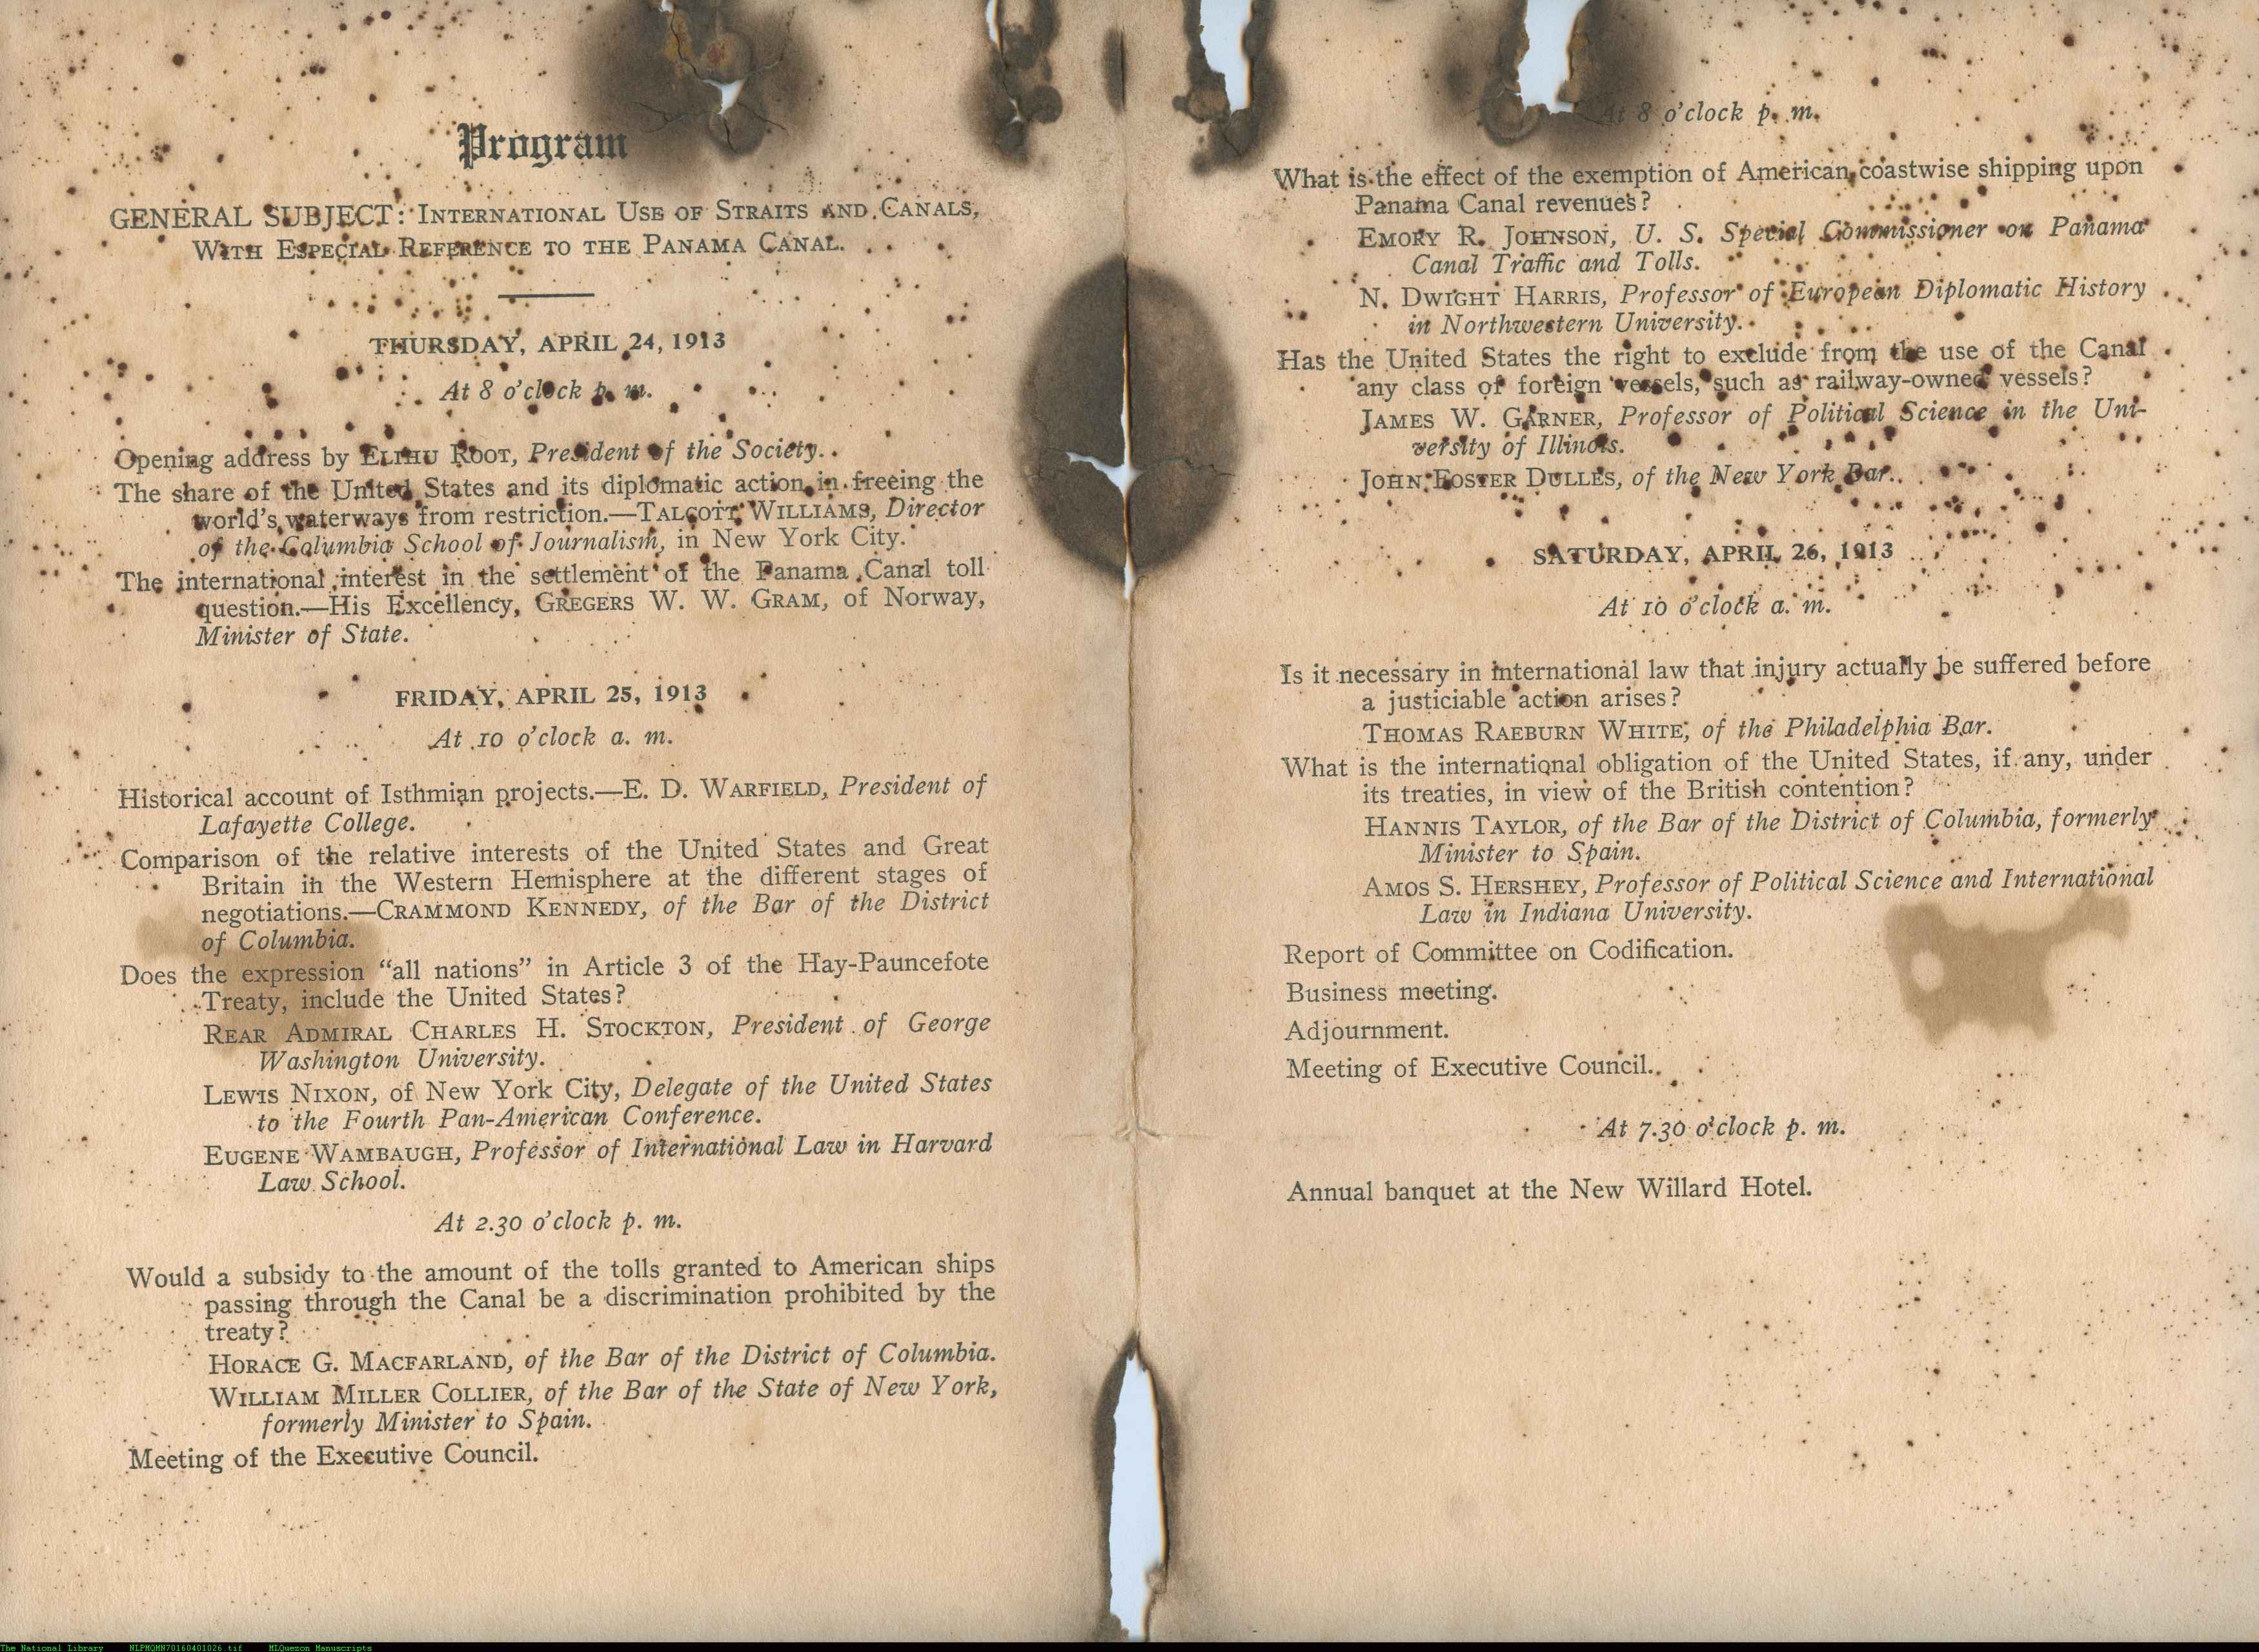 Program
GENERAL SUBJECT: INTERNATIONAL USE OF STRAITS AND CANALS,
WITH ESPECIAL REFERENCE TO THE PANAMA CANAL.
THURSDAY, APRIL 24, 1913
At 8 o'clock p. m.
Opening address by ELIHU ROOT, President of the Society.
The share of the United States and its diplomatic action in freeing the
world's waterways from restriction.—TALCOTT WILLIAMS, Director
of the Columbia School of Journalism, in New York City.
The international interest in the settlement of the Panama Canal toll
question.—His Excellency, GREGERS W. W. GRAM, of Norway,
Minister of State.
FRIDAY, APRIL 25, 1913
At 10 o'clock a. m.
Historical account of Isthmian projects.—E. D. WARFIELD, President of
Lafayette College.
Comparison of the relative interests of the United States and Great
Britain in the Western Hemisphere at the different stages of
negotiations.—CRAMMOND KENNEDY, of the Bar of the District
of Columbia.
Does the expression "all nations" in Article 3 of the Hay-Pauncefote
Treaty, include the United States?
REAR ADMIRAL CHARLES H. STOCKTON, President of George
Washington University.
LEWIS NIXON, of New York City, Delegate of the United States
to the Fourth Pan-American Conference.
EUGENE WAMBAUGH, Professor of International Law in Harvard
Law School.
At 2.30 o'clock p. m.
Would a subsidy to the amount of the tolls granted to American ships
passing through the Canal be a discrimination prohibited by the
treaty?
HORACE G. MACFARLAND, of the Bar of the District of Columbia.
WILLIAM MILLER COLLIER, of the Bar of the State of New York,
formerly Minister to Spain.
Meeting of the Executive Council.
At 8 o'clock p. m.
What is the effect of the exemption of American coastwise shipping upon
Panama Canal revenues?
EMORY R. JOHNSON, U. S. Special Commissioner on Panama
Canal Traffic and Tolls.
N. DWIGHT HARRIS, Professor of European Diplomatic History
in Northwestern University.
Has the United States the right to exclude from the use of the Canal
any class of foreign vessels, such as railway-owned vessels?
JAMES W. GARNER, Professor of Political Science in the Uni-
versity of Illinois.
JOHN FOSTER DULLES, of the New York Bar.
SATURDAY, APRIL 26, 1913
At 10 o'clock a. m.
Is it necessary in international law that injury actually be suffered before
a justiciable action arises?
THOMAS RAEBURN WHITE, of the Philadelphia Bar.
What is the international obligation of the United States, if any, under
its treaties, in view of the British contention?
HANNIS TAYLOR, of the Bar of the District of Columbia, formerly
Minister to Spain.
AMOS S. HERSHEY, Professor of Political Science and International
Law in Indiana University.
Report of Committee on Codification.
Business meeting.
Adjournment.
Meeting of Executive Council.
At 7.30 o'clock p. m.
Annual banquet at the New Willard Hotel.
The National Library NLPMQMN70160401026.tif MLQuezon Manuscripts